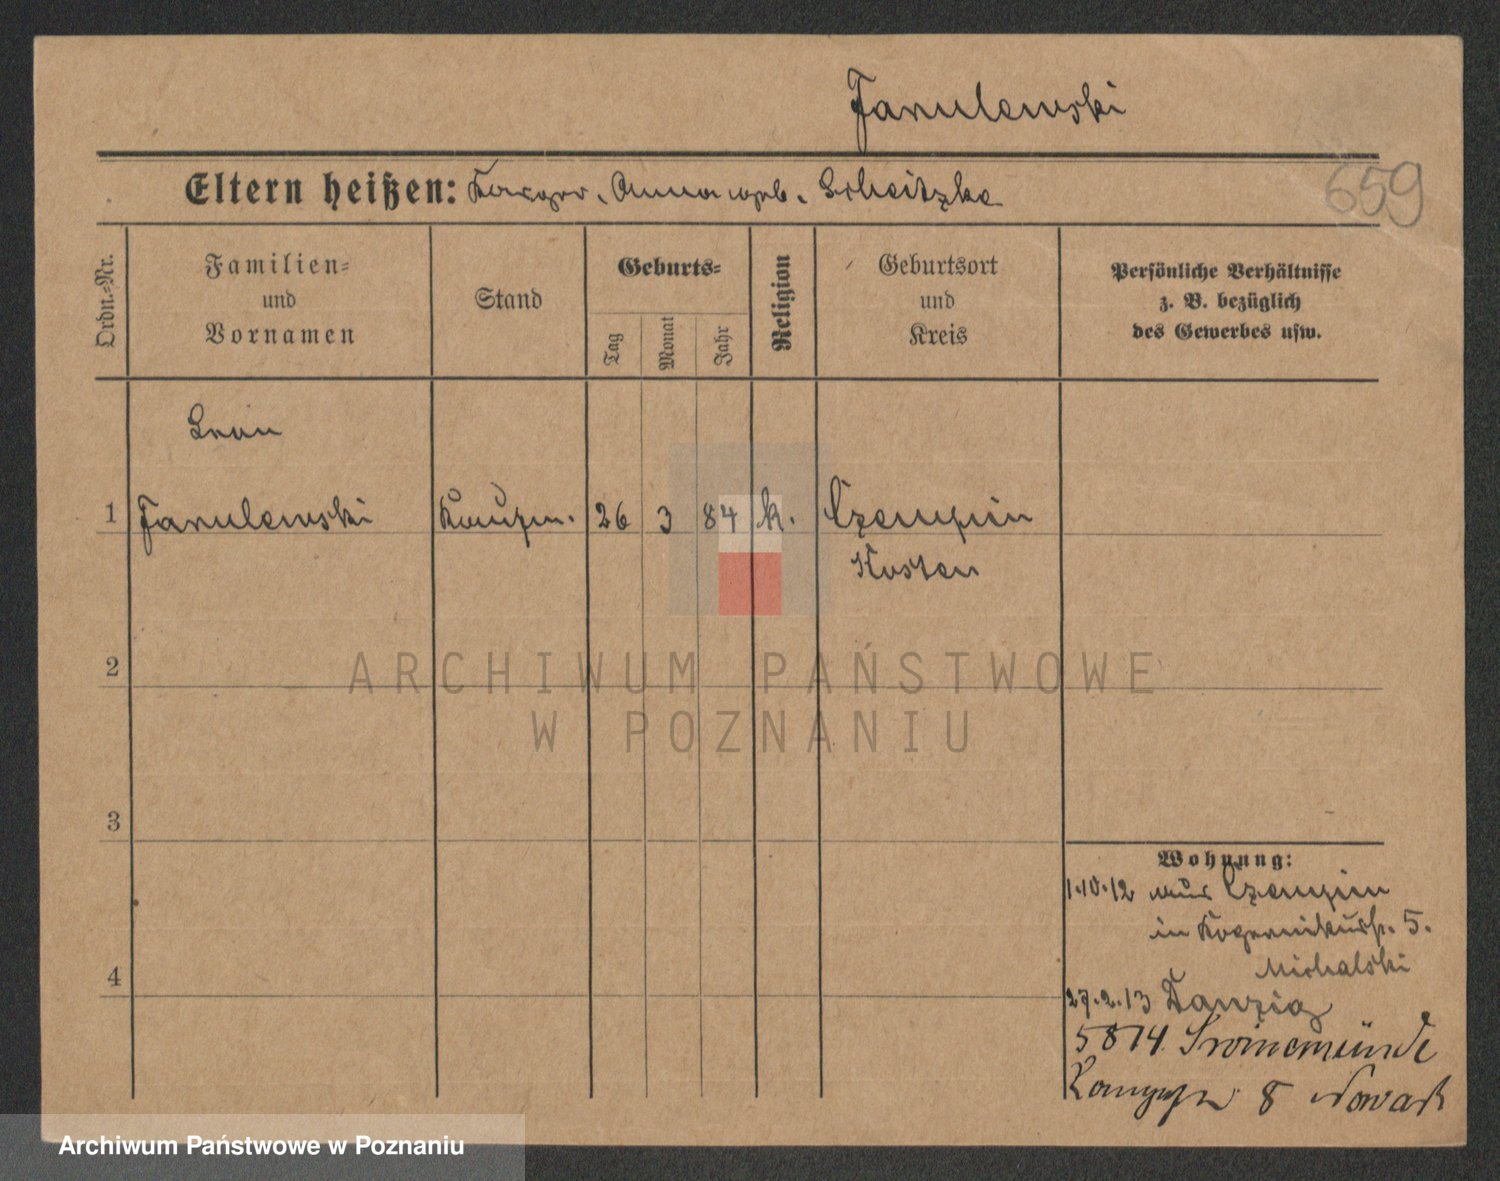 Janulewski
659
Eltern heißen: Kasper, Anna geb.
Ordn.-Nr.
Familien-
und
Vornamen
Stand
Geburts-
Tag
Monat
Jahr
Religion
Geburtsort
und
Kreis
Persönliche Verhältnisse
z. B. bezüglich
des Gewerbes usw.
Leon
1 Janulewski Kaufm. 26 3 84 k. Czempin
Kosten
2
ARCHIWUM PAŃSTWOWE
W POZNANIU
3
Wohnung:
1.10.12 aus Czempin
in 5.
Michalski
4
27.2.13 Danzig
5814 Swinemünde
8 Nowak
Archiwum Państwowe w Poznaniu